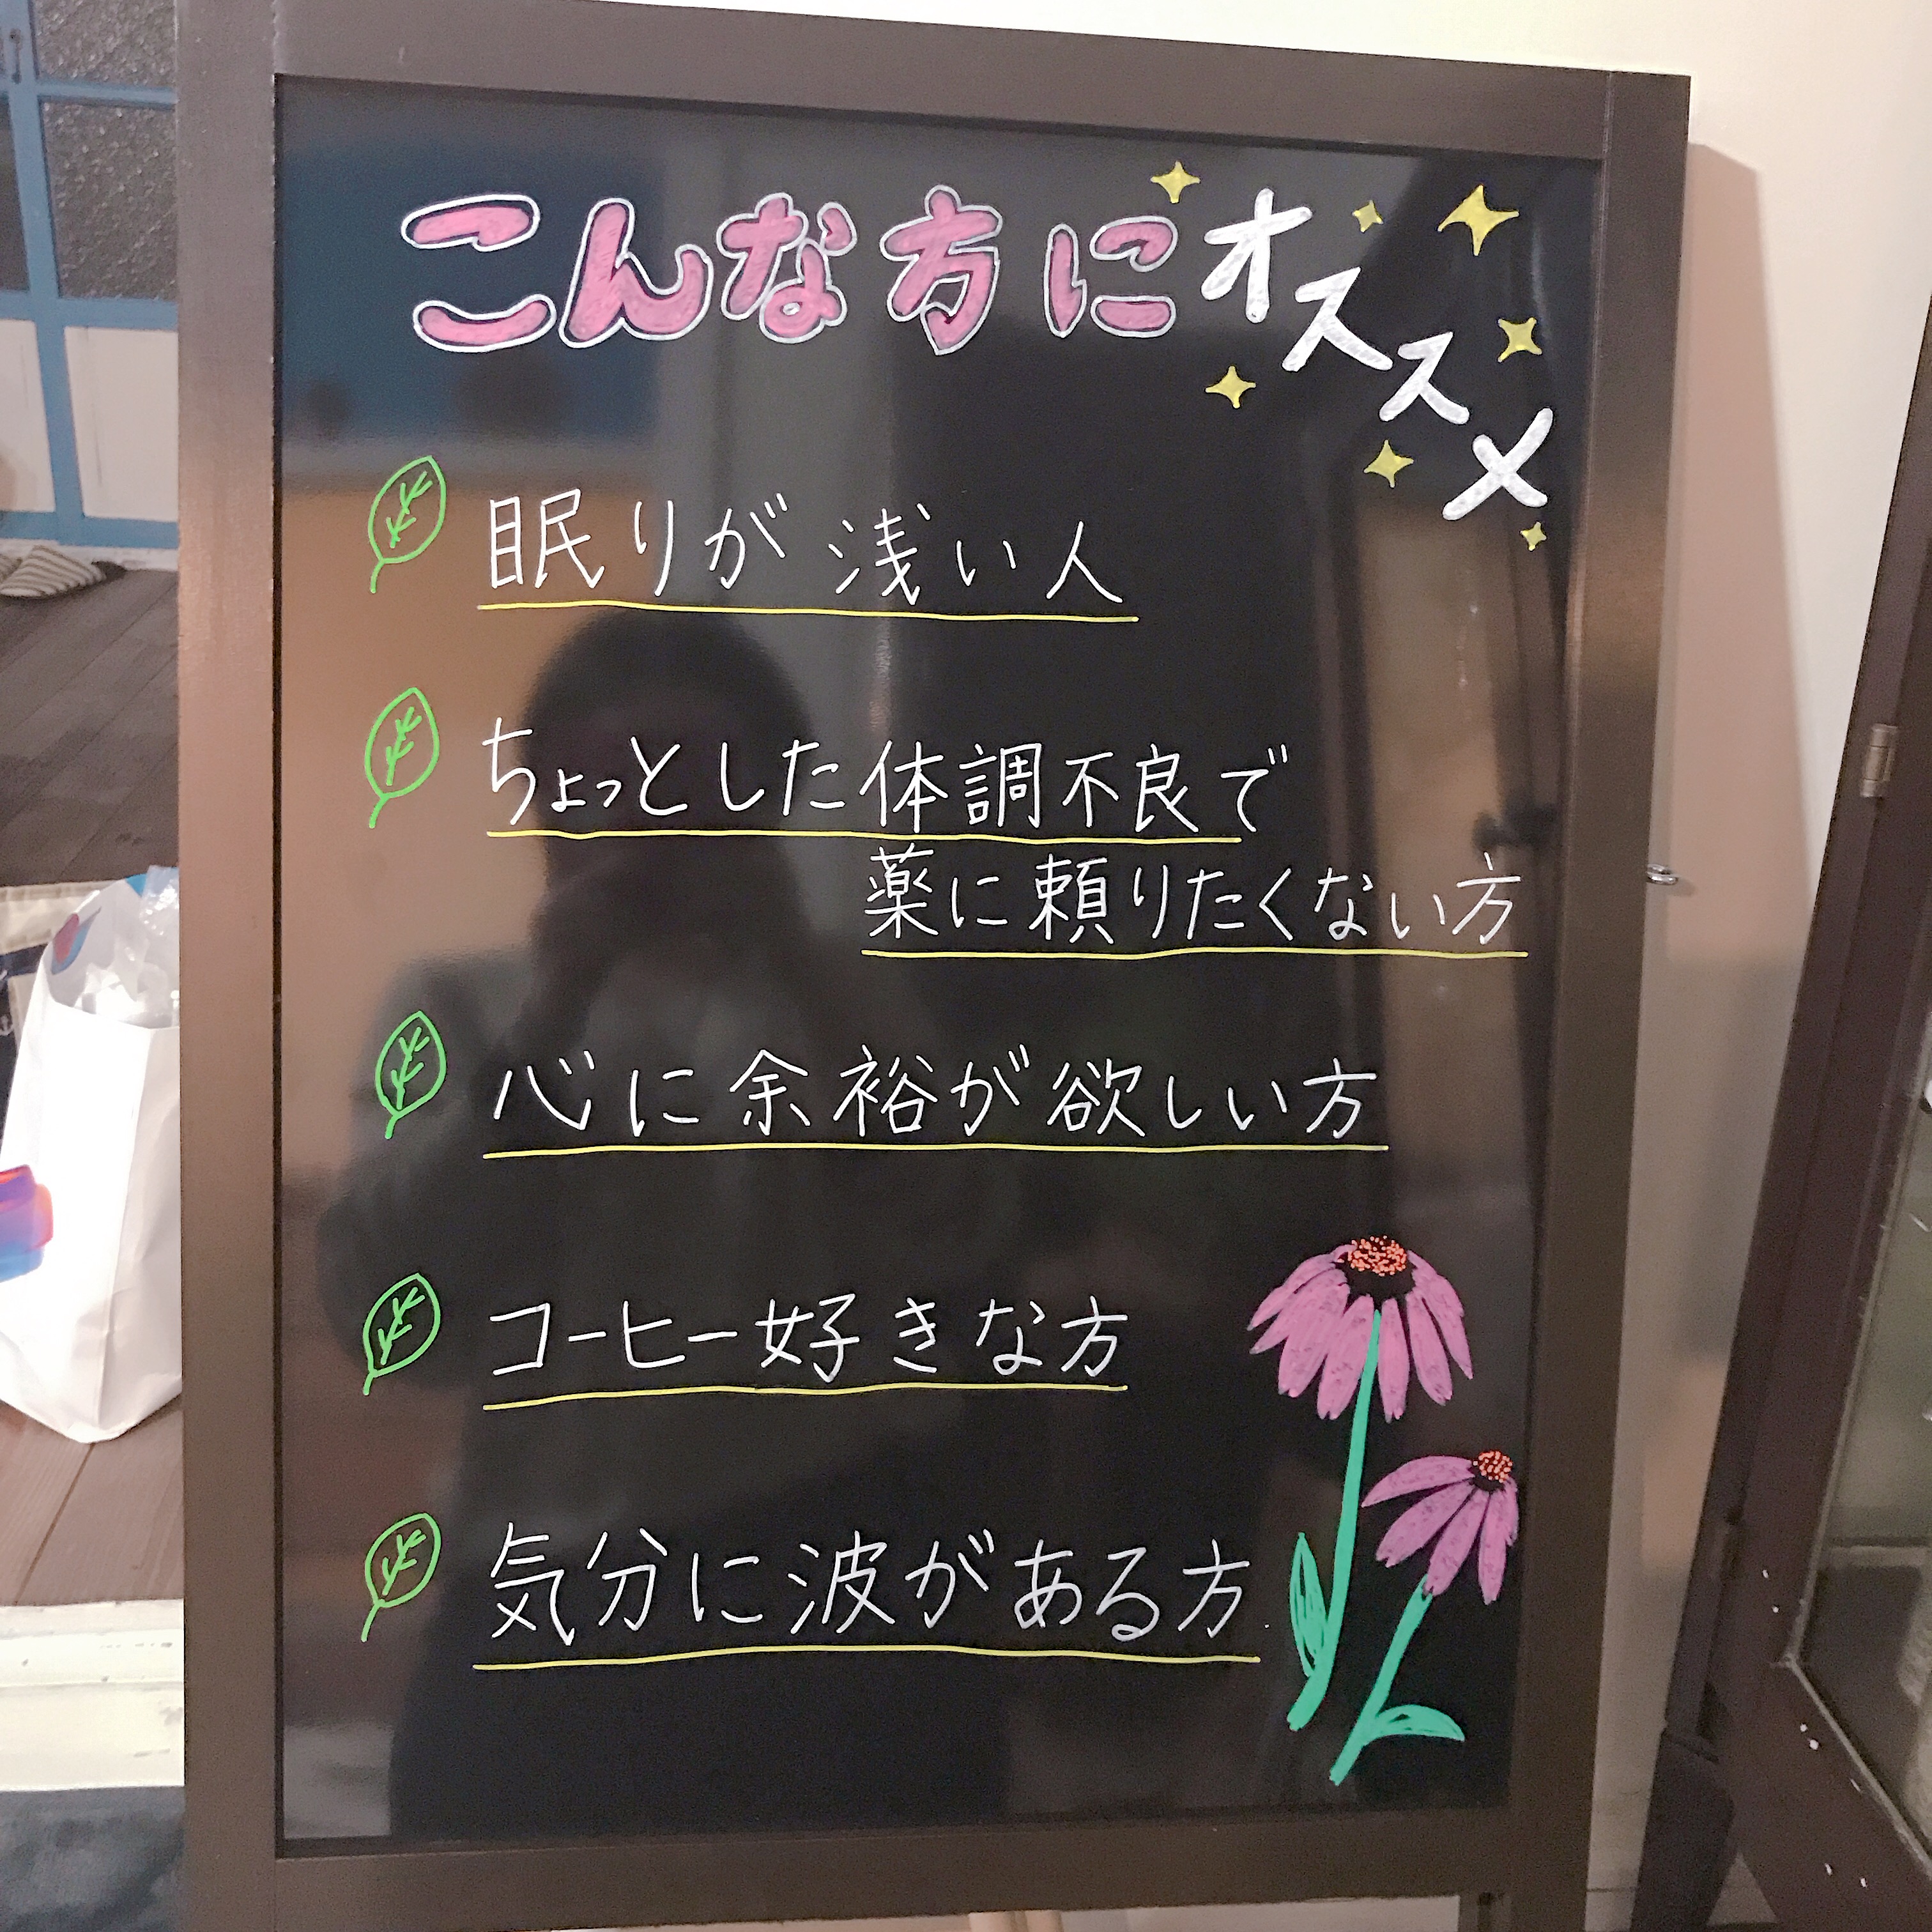 こんな方にオススメ
眠りが浅い人
ちょっとした体調不良で
薬に頼りたくない方
心に余裕が欲しい方
コーヒー好きな方
気分に波がある方